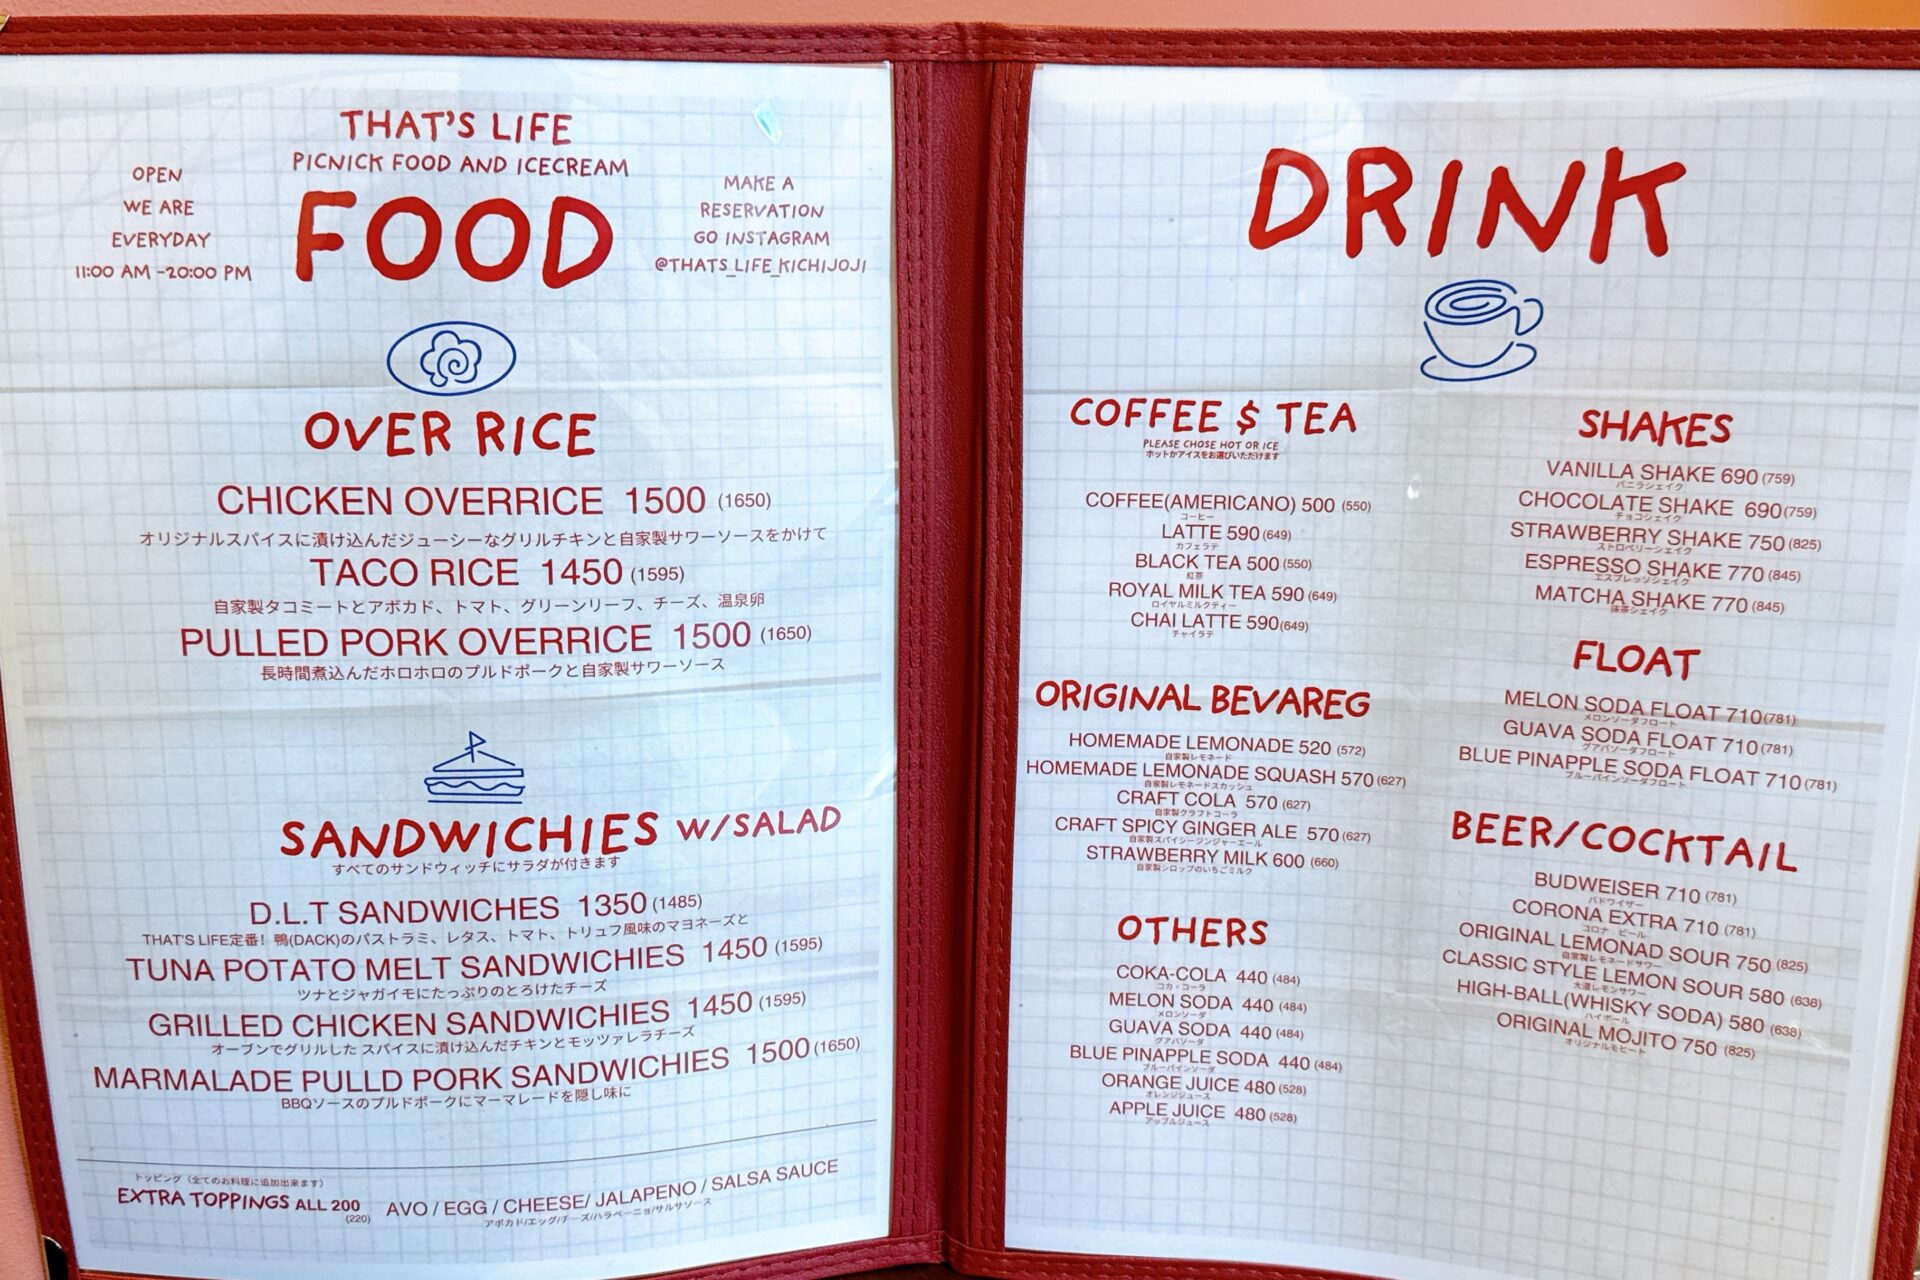 THAT'S LIFE
PICNICK FOOD AND ICECREAM
OPEN
WE ARE
EVERYDAY
11:00 AM -20:00 PM
FOOD
MAKE A
RESERVATION
GO INSTAGRAM
@THATS_LIFE_KICHIJOJI
OVER RICE
CHICKEN OVERRICE 1500 (1650)
オリジナルスパイスに漬け込んだジューシーなグリルチキンと自家製サワーソースをかけて
TACO RICE 1450 (1595)
自家製タコミートとアボカド、トマト、グリーンリーフ、チーズ、温泉卵
PULLED PORK OVERRICE 1500 (1650)
長時間煮込んだホロホロのプルドポークと自家製サワーソース
SANDWICHIES W/SALAD
すべてのサンドウィッチにサラダが付きます
D.L.T SANDWICHES 1350 (1485)
THAT'S LIFE定番！鴨(DACK)のパストラミ、レタス、トマト、トリュフ風味のマヨネーズと
TUNA POTATO MELT SANDWICHIES 1450 (1595)
ツナとジャガイモにたっぷりのとろけたチーズ
GRILLED CHICKEN SANDWICHIES 1450 (1595)
オーブンでグリルした スパイスに漬け込んだチキンとモッツァレラチーズ
MARMALADE PULLD PORK SANDWICHIES 1500 (1650)
BBQソースのプルドポークにマーマレードを隠し味に
トッピング（全てのお料理に追加出来ます）
EXTRA TOPPINGS ALL 200
(220)
AVO / EGG / CHEESE/ JALAPENO / SALSA SAUCE
アボカド/エッグ/チーズ/ハラペーニョ/サルサソース
DRINK
COFFEE $ TEA
PLEASE CHOSE HOT OR ICE
ホットかアイスをお選びいただけます
COFFEE(AMERICANO) 500 (550)
コーヒー
LATTE 590 (649)
カフェラテ
BLACK TEA 500 (550)
紅茶
ROYAL MILK TEA 590 (649)
ロイヤルミルクティー
CHAI LATTE 590 (649)
チャイラテ
ORIGINAL BEVAREG
HOMEMADE LEMONADE 520 (572)
自家製レモネード
HOMEMADE LEMONADE SQUASH 570 (627)
自家製レモネードスカッシュ
CRAFT COLA 570 (627)
自家製クラフトコーラ
CRAFT SPICY GINGER ALE 570 (627)
自家製スパイシージンジャーエール
STRAWBERRY MILK 600 (660)
自家製シロップのいちごミルク
OTHERS
COKA-COLA 440 (484)
コカ・コーラ
MELON SODA 440 (484)
メロンソーダ
GUAVA SODA 440 (484)
グアバソーダ
BLUE PINAPPLE SODA 440 (484)
ブルーパインソーダ
ORANGE JUICE 480 (528)
オレンジジュース
APPLE JUICE 480 (528)
アップルジュース
SHAKES
VANILLA SHAKE 690 (759)
バニラシェイク
CHOCOLATE SHAKE 690 (759)
チョコシェイク
STRAWBERRY SHAKE 750 (825)
ストロベリーシェイク
ESPRESSO SHAKE 770 (845)
エスプレッソシェイク
MATCHA SHAKE 770 (845)
抹茶シェイク
FLOAT
MELON SODA FLOAT 710 (781)
メロンソーダフロート
GUAVA SODA FLOAT 710 (781)
グアバソーダフロート
BLUE PINAPPLE SODA FLOAT 710 (781)
ブルーパインソーダフロート
BEER/COCKTAIL
BUDWEISER 710 (781)
バドワイザー
CORONA EXTRA 710 (781)
コロナ・ビール
ORIGINAL LEMONAD SOUR 750 (825)
自家製レモネードサワー
CLASSIC STYLE LEMON SOUR 580 (638)
大道レモンサワー
HIGH-BALL(WHISKY SODA) 580 (638)
ハイボール
ORIGINAL MOJITO 750 (825)
オリジナルモヒート